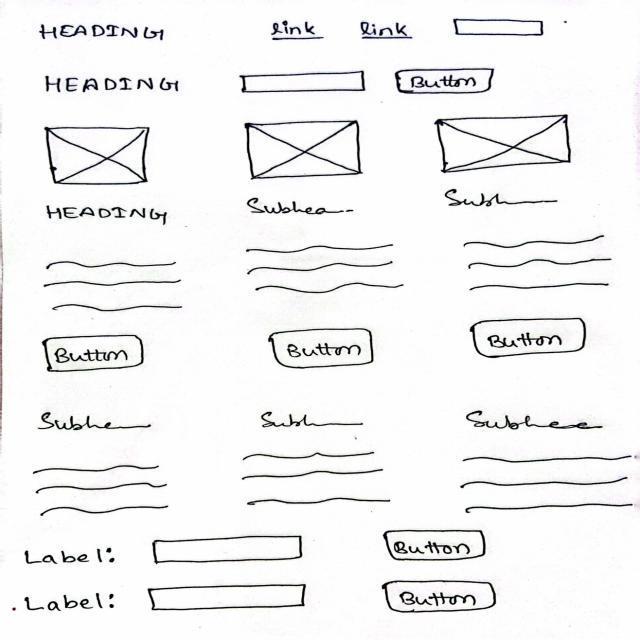 HEADING link link
HEADING Button
HEADING Subhea Subh
Button Button Button
Subhe Subh Subhee
Label: Button
Label: Button